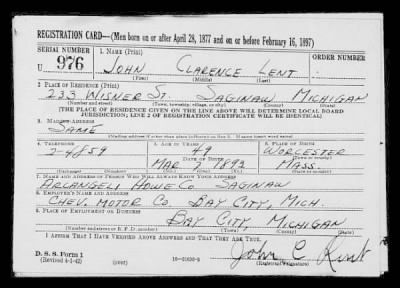 REGISTRATION CARD—(Men born on or after April 28, 1877 and on or before February 16, 1897)
SERIAL NUMBER 1. NAME (Print) ORDER NUMBER
U 976 JOHN CLARENCE LENT
(First) (Middle) (Last)
2. PLACE OF RESIDENCE (Print)
233 WISNER ST. SAGINAW MICHIGAN
(Number and street) (Town, township, village, or city) (County) (State)
[THE PLACE OF RESIDENCE GIVEN ON THE LINE ABOVE WILL DETERMINE LOCAL BOARD
JURISDICTION; LINE 2 OF REGISTRATION CERTIFICATE WILL BE IDENTICAL]
3. MAILING ADDRESS
SAME
4. TELEPHONE 5. AGE IN YEARS 6. PLACE OF BIRTH
2-4859 49 WORCESTER
DATE OF BIRTH (Town or county)
MAR 7 1892 MASS.
(Exchange) (Number) (Mo.) (Day) (Yr.) (State or country)
7. NAME AND ADDRESS OF PERSON WHO WILL ALWAYS KNOW YOUR ADDRESS
ARCANGELI HOWE CO. SAGINAW
8. EMPLOYER'S NAME AND ADDRESS
CHEV. MOTOR CO. BAY CITY, MICH.
9. PLACE OF EMPLOYMENT OR BUSINESS
BAY CITY, MICHIGAN
(Number and street or R. F. D. number) (Town) (County) (State)
I AFFIRM THAT I HAVE VERIFIED ABOVE ANSWERS AND THAT THEY ARE TRUE.
D. S. S. Form 1
(Revised 4-1-42) (over) John C Lent
(Registrant's signature)